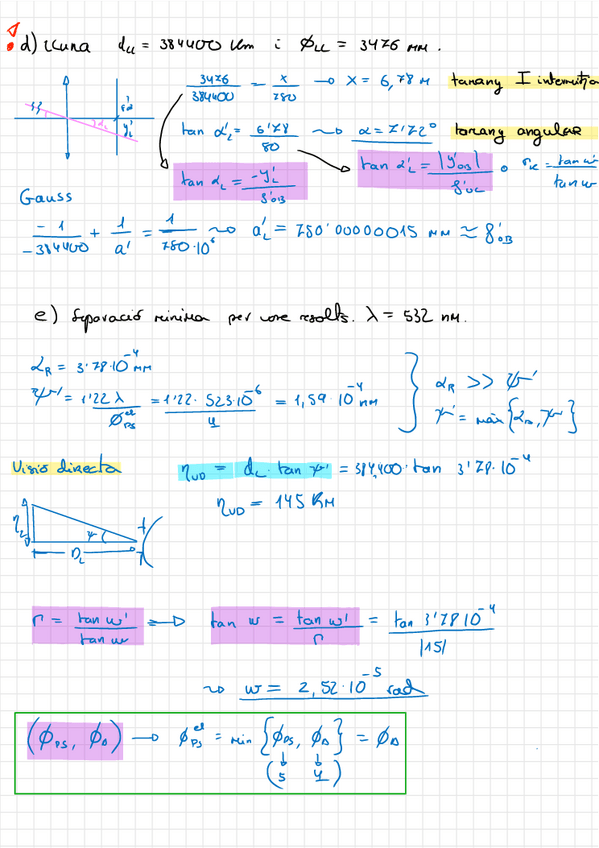 d) Lluna d_LL = 384400 Km i ϕ_LL = 3476 km.
3476/384400 = x/780 → x = 6,78 m tamany I intermitja
tan α'_L = 6'78/80 ~> α = 7'72° tamany angular
tan α_L = -y'_L/f'_OB
tan α'_L = |y'_OB|/f'_OC o Γ = tan w'/tan w
Gauss
-1/-384400 + 1/a' = 1/780·10⁶ ~> a'_L = 780'00000015 mm ≈ f'_OB
e) Separació mínima per core resolts. λ = 532 nm.
α_R = 3'78·10⁻⁴ mm
ψ' = 1'22 λ/ϕ_PS^el = 1'22·523·10⁻⁶/4 = 1,59·10⁻⁴ mm
α_R >> ψ'
ψ' = màx {α_R, ψ'}
Visió directa
η_UD = d_L · tan ψ' = 384,400·tan 3'78·10⁻⁴
η_UD = 145 Km
η_L
ψ
D_L
Γ = tan w'/tan w ⇒ tan w = tan w'/Γ = tan 3'78 10⁻⁴/|15|
~> w = 2,52·10⁻⁵ rad
(ϕ_PS, ϕ_Δ) → ϕ_PS^el = min {ϕ_PS, ϕ_Δ} = ϕ_Δ
(5 4)